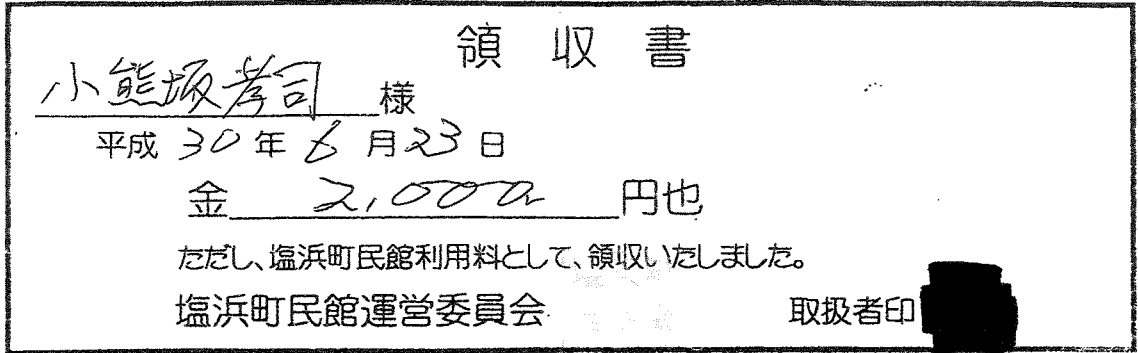 領収書
小熊坂孝司 様
平成 30 年 6 月 23 日
金 2,000 円也
ただし、塩浜町民館利用料として、領収いたしました。
塩浜町民館運営委員会 取扱者印